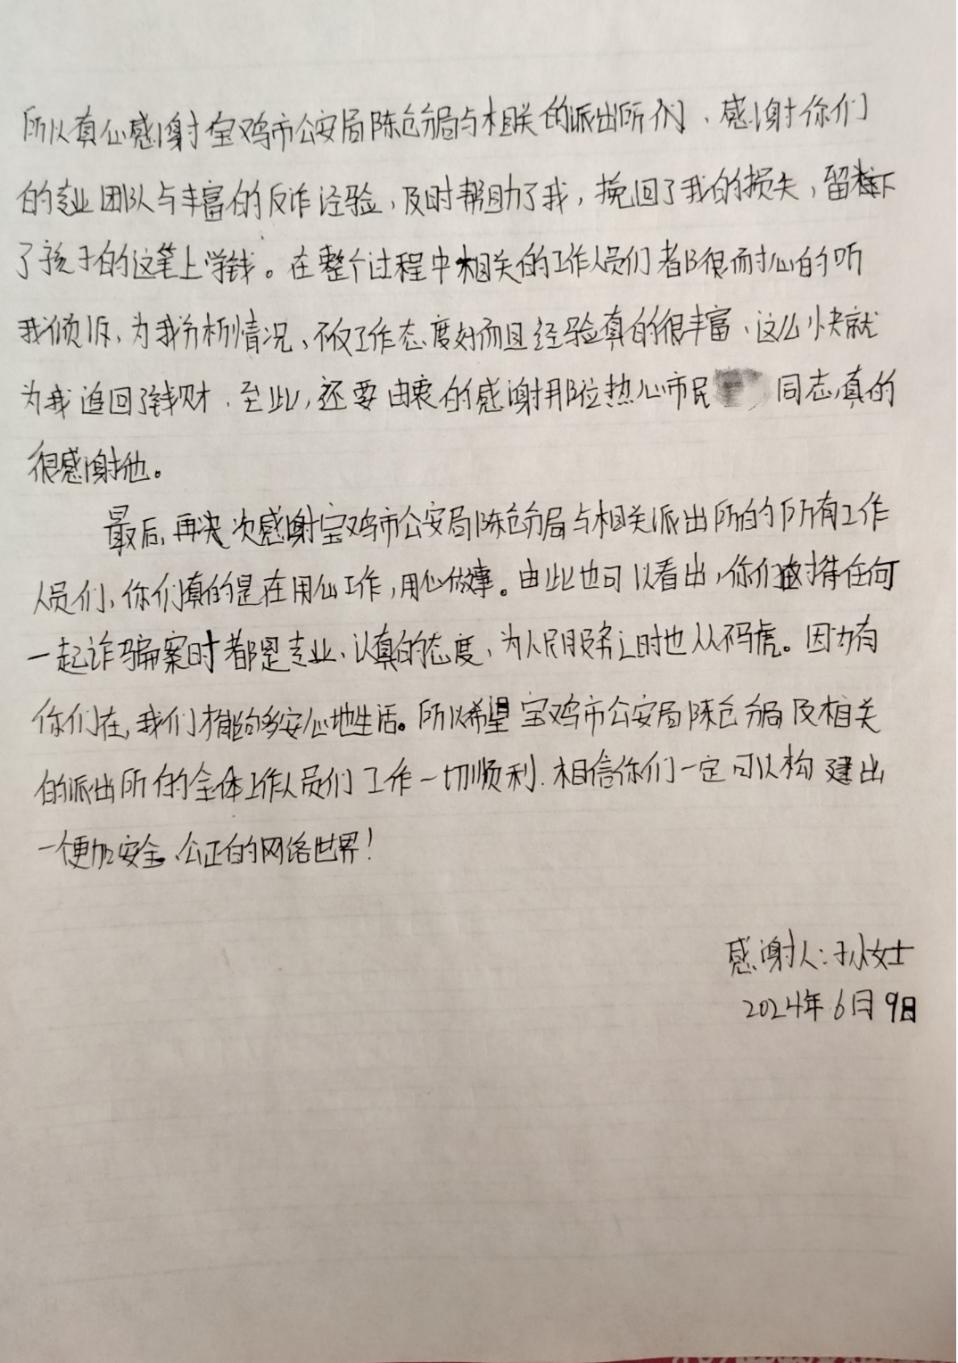 所以真心感谢宝鸡市公安局陈仓分局与相关的派出所们、感谢你们
的专业团队与丰富的反诈经验,及时帮助了我,挽回了我的损失,留下
了孩子的这笔上学钱。在整个过程中相关的工作人员们都很耐心的听
我倾诉、为我分析情况、不仅工作态度好而且经验真的很丰富、这么快就
为我追回了钱财.至此,还要由衷的感谢那位热心市民 同志,真的
很感谢他。
最后,再次感谢宝鸡市公安局陈仓分局与相关派出所的所有工作
人员们,你们真的是在用心工作,用心做事。由此也可以看出,你们对待任何
一起诈骗案时都是专业、认真的态度、为人民服务让时也从不马虎。因为有
你们在,我们才能够安心地生活。所以希望宝鸡市公安局陈仓分局及相关
的派出所的全体工作人员们工作一切顺利.相信你们一定可以构建出
一个更加安全、公正的网络世界!
感谢人:孙女士
2024年6月9日